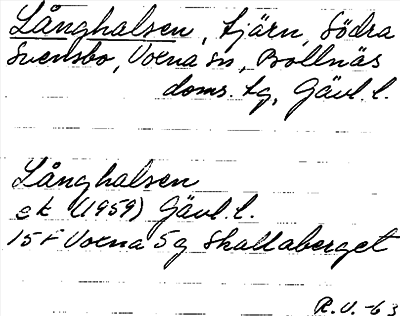 Långhalsen, tjärn, Södra
Svensbo, Voxna sn, Bollnäs
doms. tg, Gävl. l.
Långhalsen
ek (1959) Gävl. l.
15F Voxna 5g Skallaberget
R. U. -63